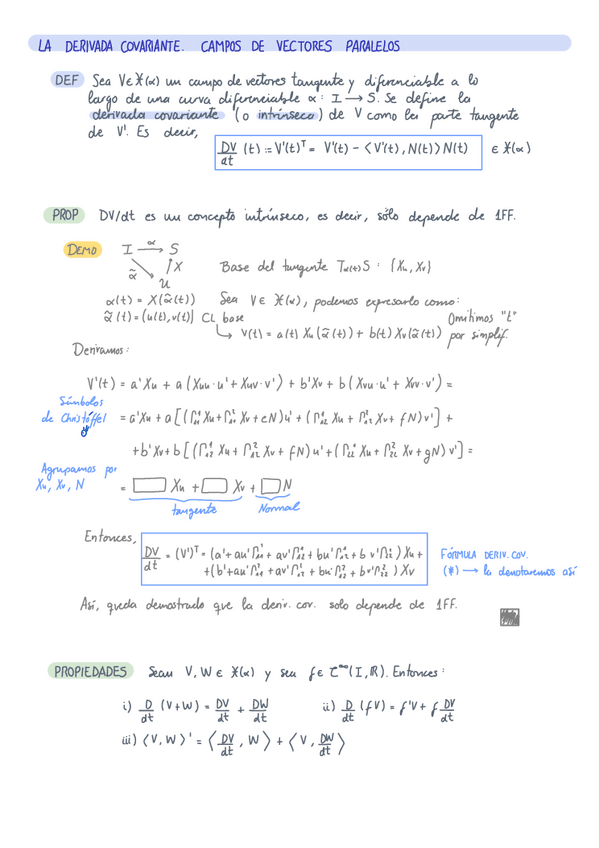 LA DERIVADA COVARIANTE. CAMPOS DE VECTORES PARALELOS
DEF Sea V∈𝔛(α) un campo de vectores tangente y diferenciable a lo
largo de una curva diferenciable α: I → S. Se define la
derivada covariante (o intrínseca) de V como la parte tangente
de V'. Es decir,
DV/dt (t) := V'(t)ᵀ = V'(t) - <V'(t), N(t)> N(t) ∈ 𝔛(α)
PROP DV/dt es un concepto intrínseco, es decir, sólo depende de 1FF.
DEMO I →α S
α̃ X Base del tangente T_α(t)S : {Xu, Xv}
U
α(t) = X(α̃(t)) Sea V∈ 𝔛(α), podemos expresarlo como:
α̃(t) = (u(t), v(t)) CL base Omitimos "t"
↳ V(t) = a(t) Xu(α̃(t)) + b(t) Xv(α̃(t)) por simplif.
Derivamos:
V'(t) = a'Xu + a(Xuu·u' + Xuv·v') + b'Xv + b(Xvu·u' + Xvv·v') =
Símbolos
de Christoffel = a'Xu + a[(Γ₁₁¹ Xu + Γ₁₁² Xv + eN)u' + (Γ₁₂¹ Xu + Γ₁₂² Xv + fN)v'] +
+ b'Xv + b[(Γ₁₂¹ Xu + Γ₁₂² Xv + fN)u' + (Γ₂₂¹ Xu + Γ₂₂² Xv + gN)v'] =
Agrupamos por
Xu, Xv, N = □ Xu + □ Xv + □ N
tangente Normal
Entonces,
DV/dt = (V')ᵀ = (a' + au'Γ₁₁¹ + av'Γ₁₂¹ + bu'Γ₁₂¹ + bv'Γ₂₂¹) Xu + FÓRMULA DERIV. COV.
+ (b' + au'Γ₁₁² + av'Γ₁₂² + bu'Γ₁₂² + bv'Γ₂₂²) Xv (*) → la denotaremos así
Así, queda demostrado que la deriv. cov. solo depende de 1FF.
PROPIEDADES Sean V, W ∈ 𝔛(α) y sea f∈ C^∞(I, ℝ). Entonces:
i) D/dt (V+W) = DV/dt + DW/dt ii) D/dt (fV) = f'V + f DV/dt
iii) <V, W>' = <DV/dt, W> + <V, DW/dt>